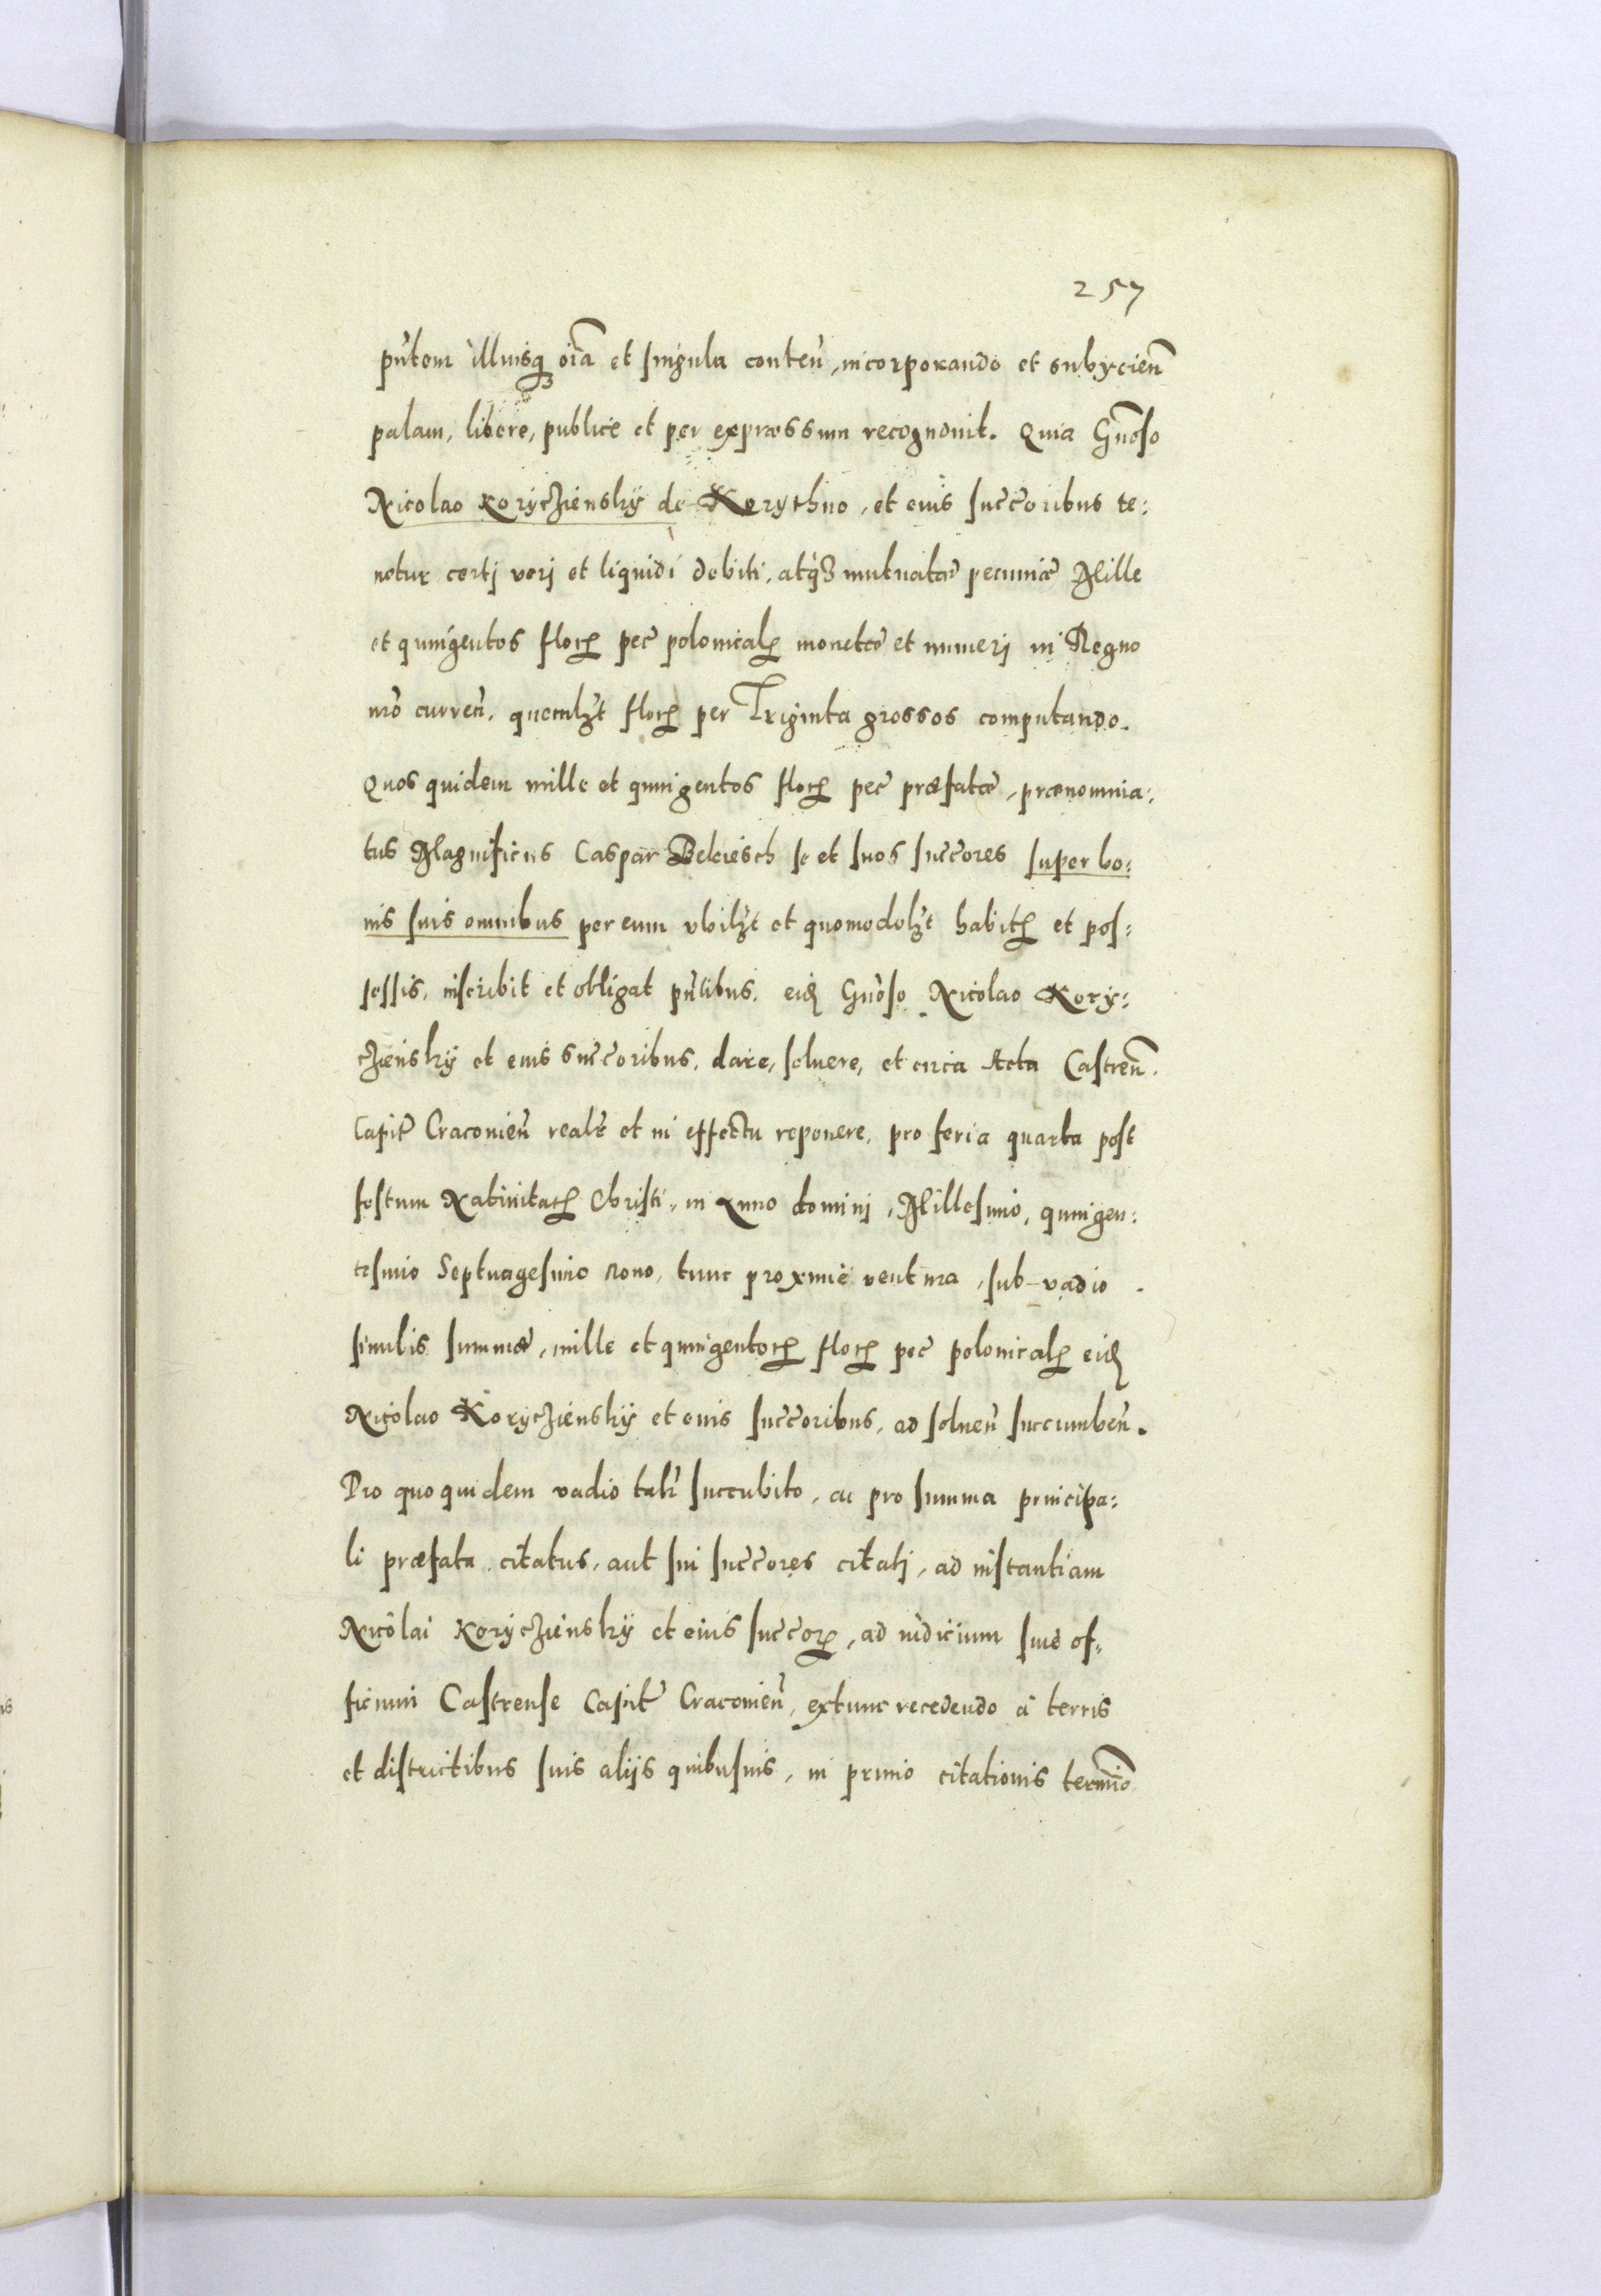 257
pn̄tem illiusq̃ʒ oīa et singula conten̄, incorporando et subijcien̄
palam, libere, publice et per expraessum recognouit. Quia Gn̄oso
Nicolao Koryczienskÿ de Korythno, et eius succ̄oribus te:
netur certj verj et liquidi debiti, atq̃ʒ mutuatæ pecuniæ Mille
et quingentos floꝝ pec̄ polonicalꝝ monetæ et numerj in Regno
nr̄o curren̄, quemlʒt floꝝ per Triginta grossos computando.
Quos quidem mille et quingentos floꝝ pec̄ præfatæ, prænomina:
tus Magnificus Caspar Bekiesch se et suos succ̄ores super bo:
nis suis omnibus per eum vbilʒt et quomodolʒt habitꝝ et pos:
sessis, inscribit et obligat pn̄tibus, eidꝫ Gn̄oso Nicolao Kory:
czienskÿ et eius succ̄oribus, dare, soluere, et circa Acta Castren̄.
Capit̄ Cracouien̄ realr̄ et in effectu reponere, pro feria quarta post
festum Natiuitatꝝ Christi, in Anno dominj, Millesimo, quingen:
tesimo Septuagesimo nono, tunc proxime ventura, sub vadio
similis summæ, mille et quingentoꝝ floꝝ pec̄ polonicalꝝ eidꝫ
Nicolao Koryczienskÿ et eius succ̄oribus, ad soluen̄ succumben̄.
Pro quo quidem vadio tali succubito, ac pro summa principa:
li præfata citatus, aut sui succ̄ores citatj, ad instantiam
Nicolai Koryczienskÿ et eius succ̄oꝝ, ad iudicium siue of:
ficium Castrense Capit̄ Cracouien̄, extunc recedendo à terris
et districtibus suis alijs quibusuis, in primo citationis termīo